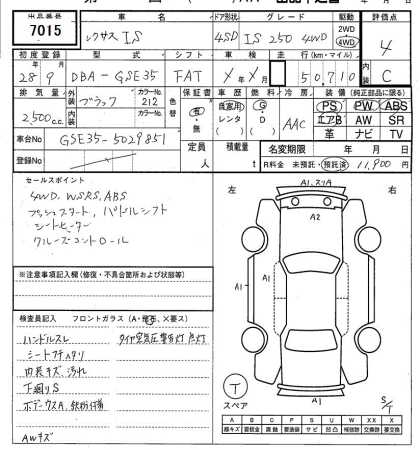 出品番号 車名 ドア形状 グレード 駆動 評価点
7015 レクサス IS 4SD IS 250 4WD 2WD 4WD 4
初度登録 型式 シフト 車検 走行(km・マイル) 内装
28年 9月 DBA-GSE35 FAT 年 月 50,710 C
排気量 外装 カラーNo. 色替 保証書 車歴 燃料 冷房 装備(純正部品に限る)
2,500 c.c. ブラック 212 有・無 自家用 レンタ G D AAC PS PW ABS
内装 カラーNo. エアB AW SR
革 ナビ TV
車台No GSE35-5029851 定員 人 積載量 t 名変期限 年 月 日
登録No R料金 未預託・預託済 11,900円
セールスポイント
4WD、WSRS、ABS
プッシュスタート、パドルシフト
シートヒーター
クルーズコントロール
※注意事項記入欄(修復・不具合箇所および状態等)
検査員記入 フロントガラス(A・飛石、×要ス)
ハンドルスレ タイヤ空気圧警告灯点灯
内装キズ 汚れ
下廻りS
AWキズ
左 右
A1、スリA
A2
A1
A1
A1
A1
T
スペア
S/T
A B C P S U W X XX X
線キズ 要板金 腐蝕 要塗装 サビ 凹凸 補修跡 交換跡 要交換